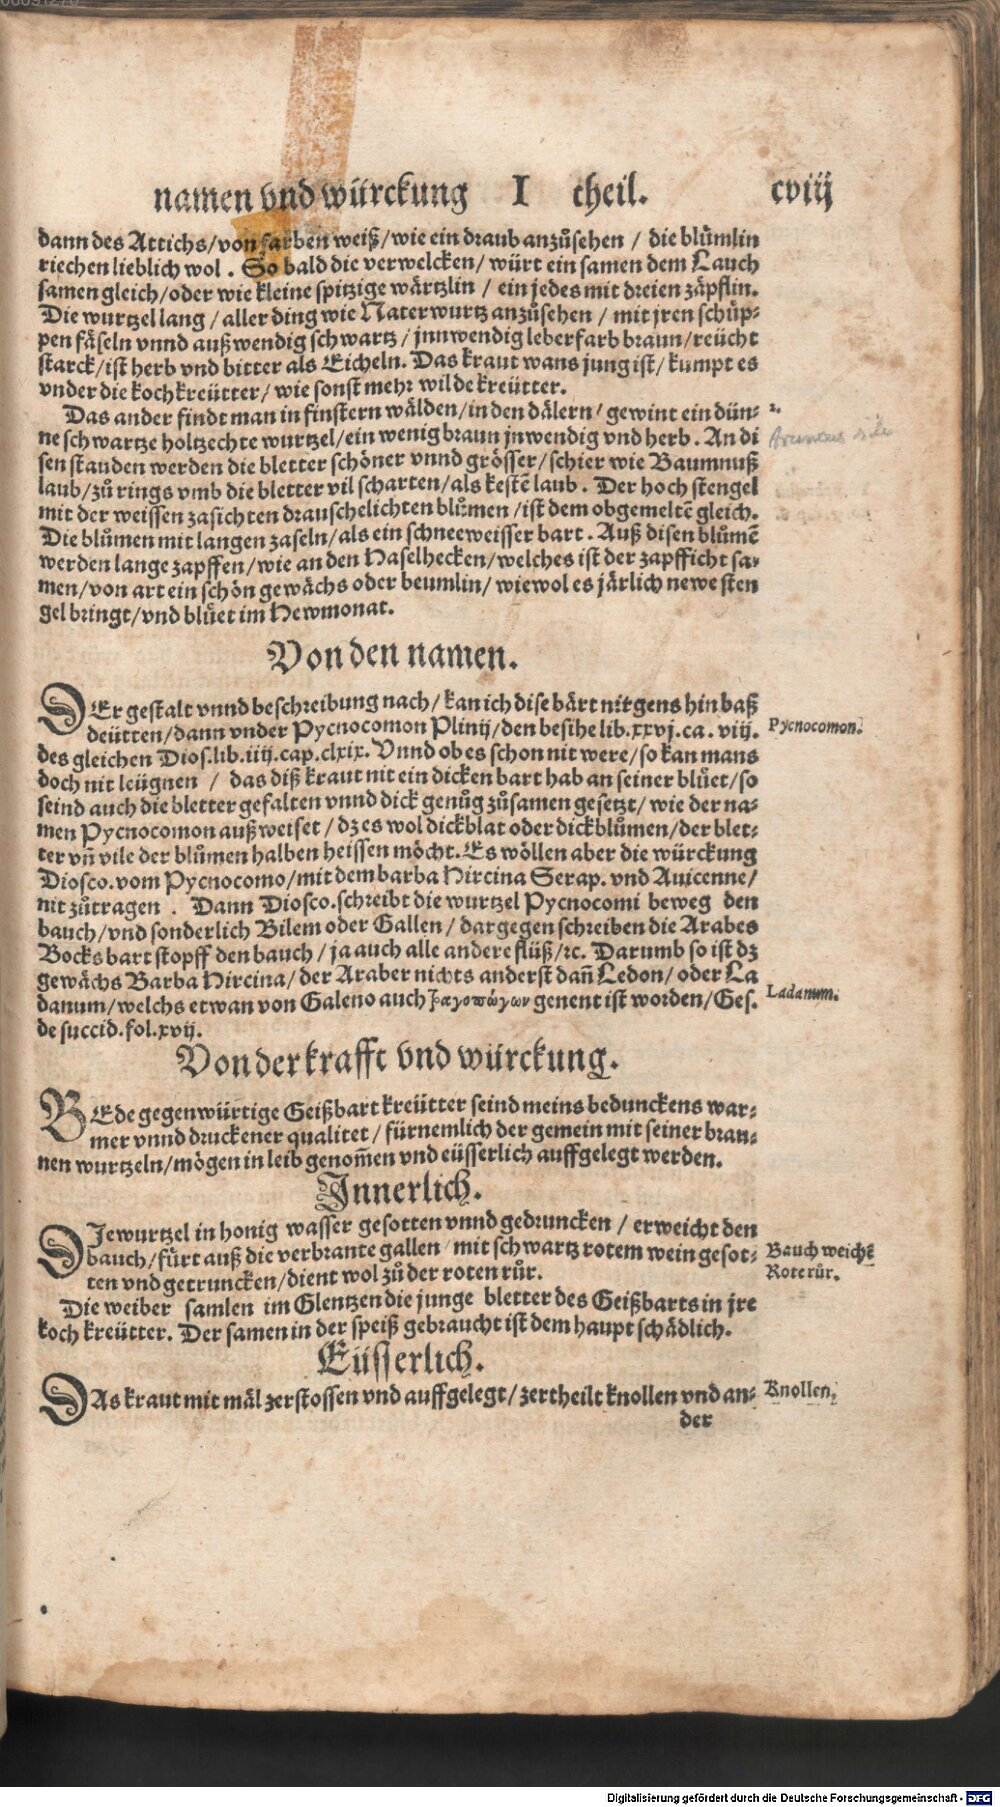 namen vnd würckung I theil. cviij
dann des Attichs/von farben weiß/wie ein draub anzůsehen / die blůmlin
riechen lieblich wol. So bald die verwelcken/ würt ein samen dem Lauch
samen gleich/oder wie kleine spitzige wärtzlin / ein jedes mit dreien zäpflin.
Die wurtzel lang / aller ding wie Naterwurtz anzůsehen / mit jren schüp-
pen fäseln vnnd außwendig schwartz / jnnwendig leberfarb braun/reücht
starck/ist herb vnd bitter als Eicheln. Das kraut wans jung ist/ kumpt es
vnder die kochkreütter/ wie sonst mehr wilde kreütter.
Das ander findt man in finstern wälden/in den dälern/ gewint ein dün- 2.
ne schwartze holtzechte wurtzel/ein wenig braun jnwendig vnd herb. An di
sen stauden werden die bletter schöner vnnd grösser/schier wie Baumnuß
laub/zů rings vmb die bletter vil scharten/als kestē laub. Der hoch stengel
mit der weissen zasichten drauschelichten blůmen/ist dem obgemeltē gleich.
Die blůmen mit langen zaseln/als ein schneeweisser bart. Auß disen blůmē
werden lange zapffen/wie an den Haselhecken/welches ist der zapfficht sa-
men/von art ein schön gewächs oder beumlin/ wiewol es järlich newe sten
gel bringt/vnd blůet im Hewmonat.
Von den namen.
DEr gestalt vnnd beschreibung nach/kan ich dise bärt nirgens hin baß
deütten/dann vnder Pycnocomon Plinij/den besihe lib.xxvj.ca. viij. Pycnocomon.
des gleichen Dios.lib.iiij.cap.clxix. Vnnd ob es schon nit were/so kan mans
doch nit leügnen / das diß kraut nit ein dicken bart hab an seiner blüet/so
seind auch die bletter gefalten vnnd dick genůg zůsamen gesetzt/wie der na-
men Pycnocomon außweiset/dz es wol dickblat oder dickblůmen/der blet-
ter vñ vile der blůmen halben heissen möcht. Es wöllen aber die würckung
Diosco.vom Pycnocomo/mit dem barba Hircina Serap. vnd Auicenne/
nit zůtragen . Dann Diosco.schreibt die wurtzel Pycnocomi beweg den
bauch/vnd sonderlich Bilem oder Gallen/dargegen schreiben die Arabes
Bocksbart stopff den bauch/ja auch alle andere flüß/rc. Darumb so ist dz
gewächs Barba Hircina/der Araber nichts anderst dañ Ledon/oder La
danum/welchs etwan von Galeno auch τραγοπώγων genent ist worden/Ges. Ladanum.
de succid.fol.xvij.
Von der krafft vnd würckung.
BEde gegenwürtige Geißbart kreütter seind meins bedunckens war-
mer vnnd druckener qualitet/fürnemlich der gemein mit seiner brau-
nen wurtzeln/mögen in leib genom̄en vnd eüsserlich auffgelegt werden.
Innerlich.
DIe wurtzel in honig wasser gesotten vnnd gedruncken / erweicht den
bauch/fürt auß die verbrante gallen/mit schwartz rotem wein gesot- Bauch weichē
ten vnd getruncken/dient wol zů der roten růr. Rote růr.
Die weiber samlen im Glentzen die junge bletter des Geißbarts in jre
koch kreütter. Der samen in der speiß gebraucht ist dem haupt schädlich.
Eüsserlich.
DAs kraut mit mäl zerstossen vnd auffgelegt/zertheilt knollen vnd an- Knollen.
der
Digitalisierung gefördert durch die Deutsche Forschungsgemeinschaft - DFG